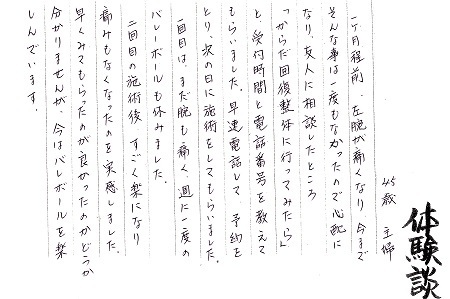 体験談
45歳 主婦
一ヶ月程前、左腕が痛くなり、今まで
そんな事は一度もなかったので心配に
なり、友人に相談したところ
「からだ回復整体に行ってみたら」
と、受付時間と電話番号を教えて
もらいました。早速電話して、予約を
とり、次の日に施術をしてもらいました。
一回目は、まだ腕も痛く、週に一度の
バレーボールも休みました。
二回目の施術後、すごく楽になり
痛みもなくなったのを実感しました。
早くみてもらったのが良かったのかどうか
分かりませんが、今はバレーボールを楽
しんでいます。